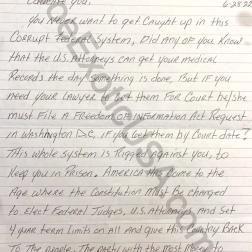 you Never want to get Caught up in this
Corrupt Federal System, Did any of you Know
that the U.S. Attorneys can get your medical
Records the day something is done, But if you
need your Lawyer them For Court he/she
must File A Freedom of Information Act Request
in Washington DC, if you get them by Court date?
This whole system is Rigged against you, to
Keep you in Prison. America has Come to the
Age where the Constitution Must be changed
to Elect Federal Judges, U.S. Attorneys, and Set
4 year term Limits on All and give this Country Back
To The people. The party with the most Money to